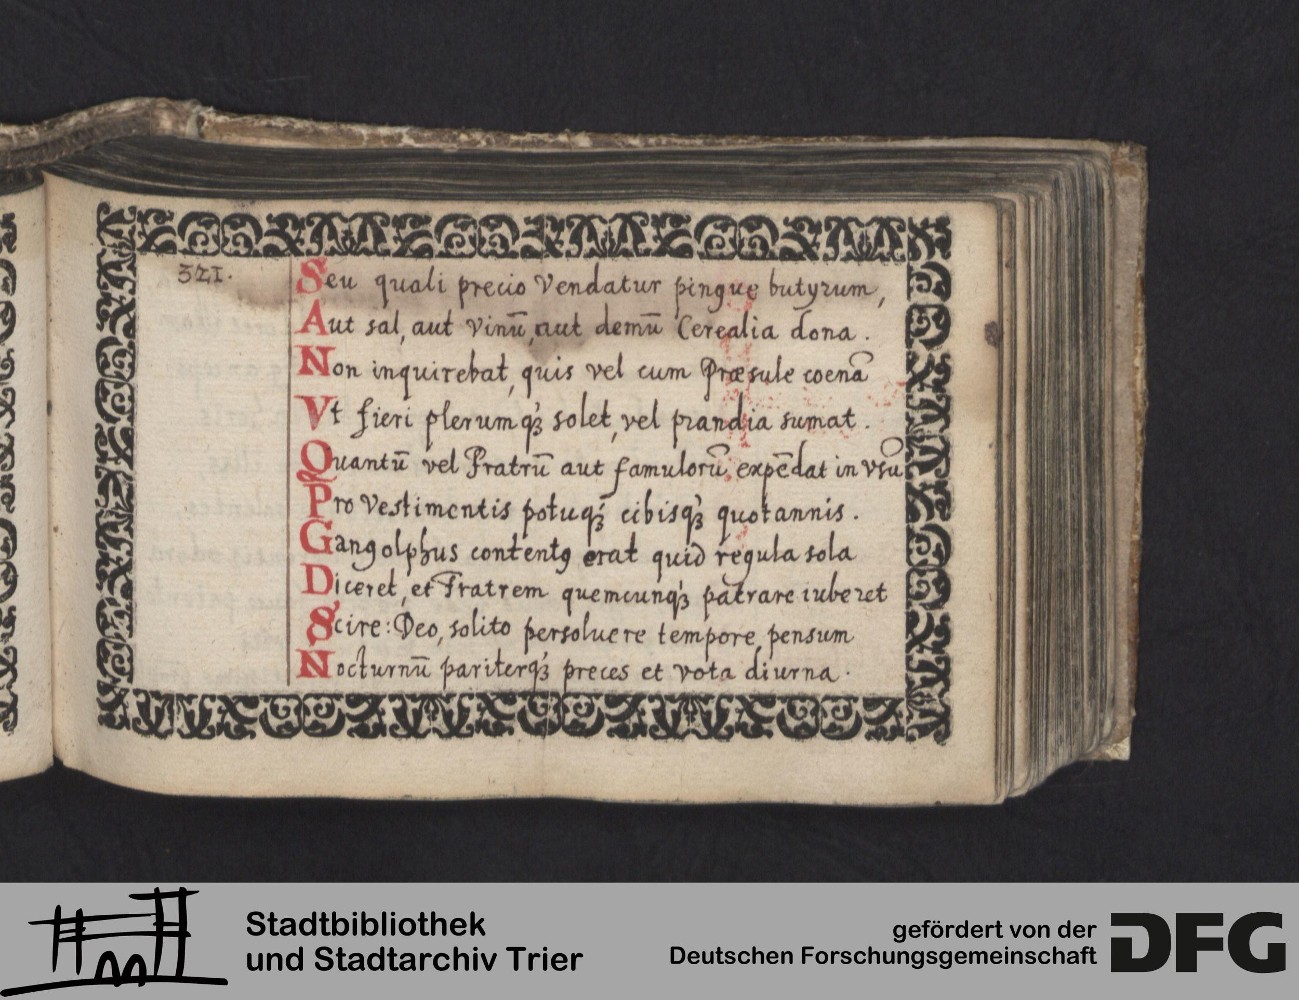 321.
Seu quali precio vendatur pingue butyrum,
Aut sal, aut vinū, aut demū Cerealia dona.
Non inquirebat, quis vel cum Præsule coenā
Vt fieri plerumq₃ solet, vel prandia sumat.
Quantū vel Fratrū aut famulorū, expēdat in vsū
Pro vestimentis potuq₃ cibisq₃ quotannis.
Gangolphus contentꝰ erat quid regula sola
Diceret, et Fratrem quemcunq₃ patrare iuberet
Scire: Deo, solito persoluere tempore, pensum
Nocturnū pariterq₃ preces et vota diurna.
Stadtbibliothek
und Stadtarchiv Trier
gefördert von der
Deutschen Forschungsgemeinschaft
DFG